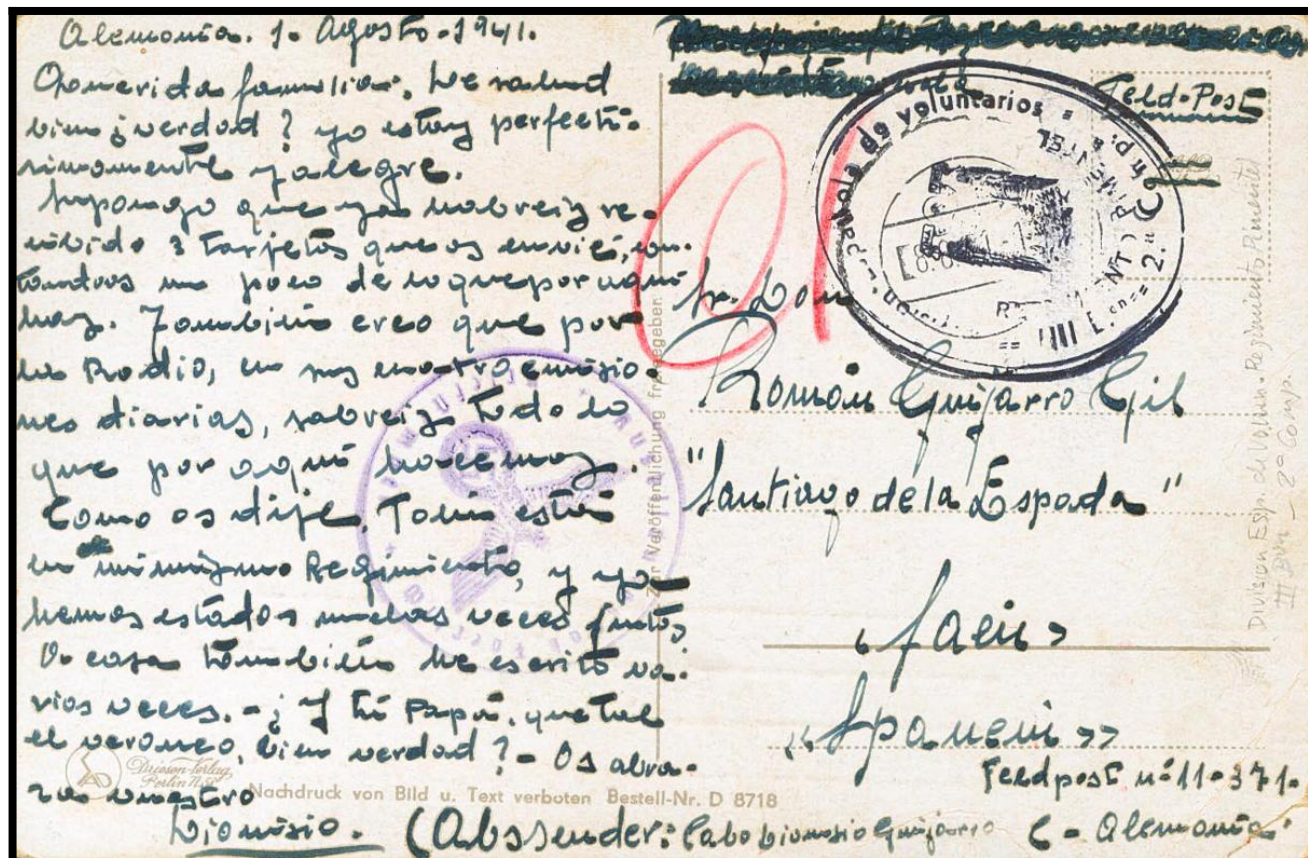 Alemania. 1. Agosto-1941.
Querida familia: De salud
bien ¿verdad? yo estoy perfectí-
simamente y alegre.
Supongo que ya habreiz re-
cibido 3 Tarjetas que os envié, con-
tandoos un poco de lo que por aquí
hay. Tambien creo que por
la Radio, en nuestro emisio-
nes diarias, sabreiz todo lo
que por aquí hacemoz.
Como os dije, Toni está
en mi mizmo Regimiento, y ya
hemos estados muchas veces juntos
A casa también he escrito va-
rias veces. - ¿Y tú Papá, que tal
el veraneo, bien verdad? - Os abra-
za vuestro
Dionisio.
(Abssender: Cabo Dionisio Guijarro
Driesen-Verlag
Berlin
Nachdruck von Bild u. Text verboten Bestell-Nr. D 8718
Zur Veröffentlichung freigegeben
Feld-Post
de voluntarios
2.ª
Sr. Don
Román Guijarro Gil
"Santiago de la Espada"
«Jaen»
«Spanein»
Feldpost nº 11-371-
Alemania
Division Esp. de Volun. Regimiento Pimentel
III Bon - 2ª Comp.